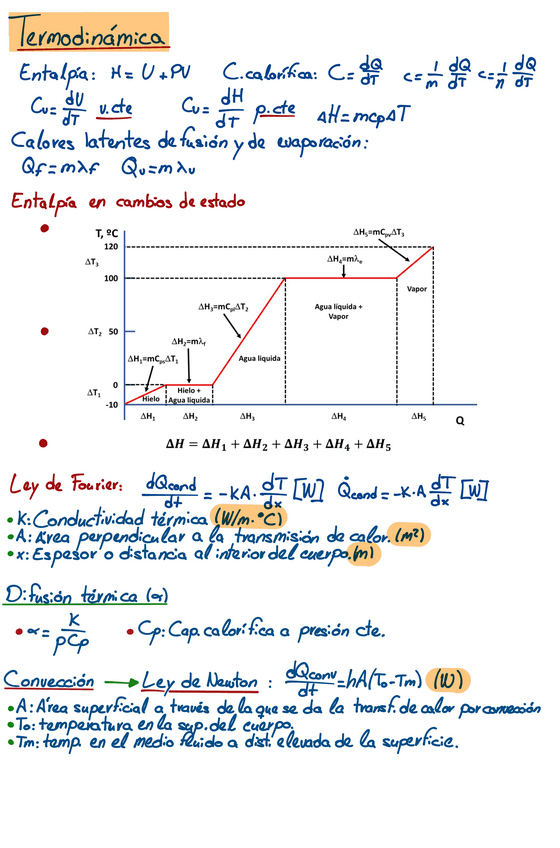 Termodinámica
Entalpía: H = U + PV   C. calorífica: C = dQ/dT   c = 1/m dQ/dT   c = 1/n dQ/dT
Cv = dU/dT v.cte   Cv = dH/dT p.cte   ΔH = mcpΔT
Calores latentes de fusión y de evaporación:
Qf = mλf   Qv = mλv
Entalpía en cambios de estado
T, ºC
ΔH₅=mCpvΔT₃
120
ΔT₃
ΔH₄=mλe
100
Vapor
ΔH₃=mCplΔT₂
Agua líquida +
Vapor
ΔT₂ 50
ΔH₂=mλf
ΔH₁=mCpsΔT₁
Agua líquida
0
Hielo +
ΔT₁
Hielo
Agua líquida
-10
ΔH₁ ΔH₂ ΔH₃ ΔH₄ ΔH₅
Q
ΔH = ΔH₁ + ΔH₂ + ΔH₃ + ΔH₄ + ΔH₅
Ley de Fourier: dQcond/dt = -KA · dT/dx [W]   Q̇cond = -K·A dT/dx [W]
• K: Conductividad térmica (W/m·°C)
• A: Área perpendicular a la transmisión de calor. (m²)
• x: Espesor o distancia al interior del cuerpo. (m)
Difusión térmica (α)
• α = K/ρCp   • Cp: Cap. calorífica a presión cte.
Convección → Ley de Newton: dQconv/dt = hA(To - Tm) (W)
• A: Área superficial a través de la que se da la transf. de calor por convección
• To: temperatura en la sup. del cuerpo.
• Tm: temp. en el medio fluido a dist. elevada de la superficie.